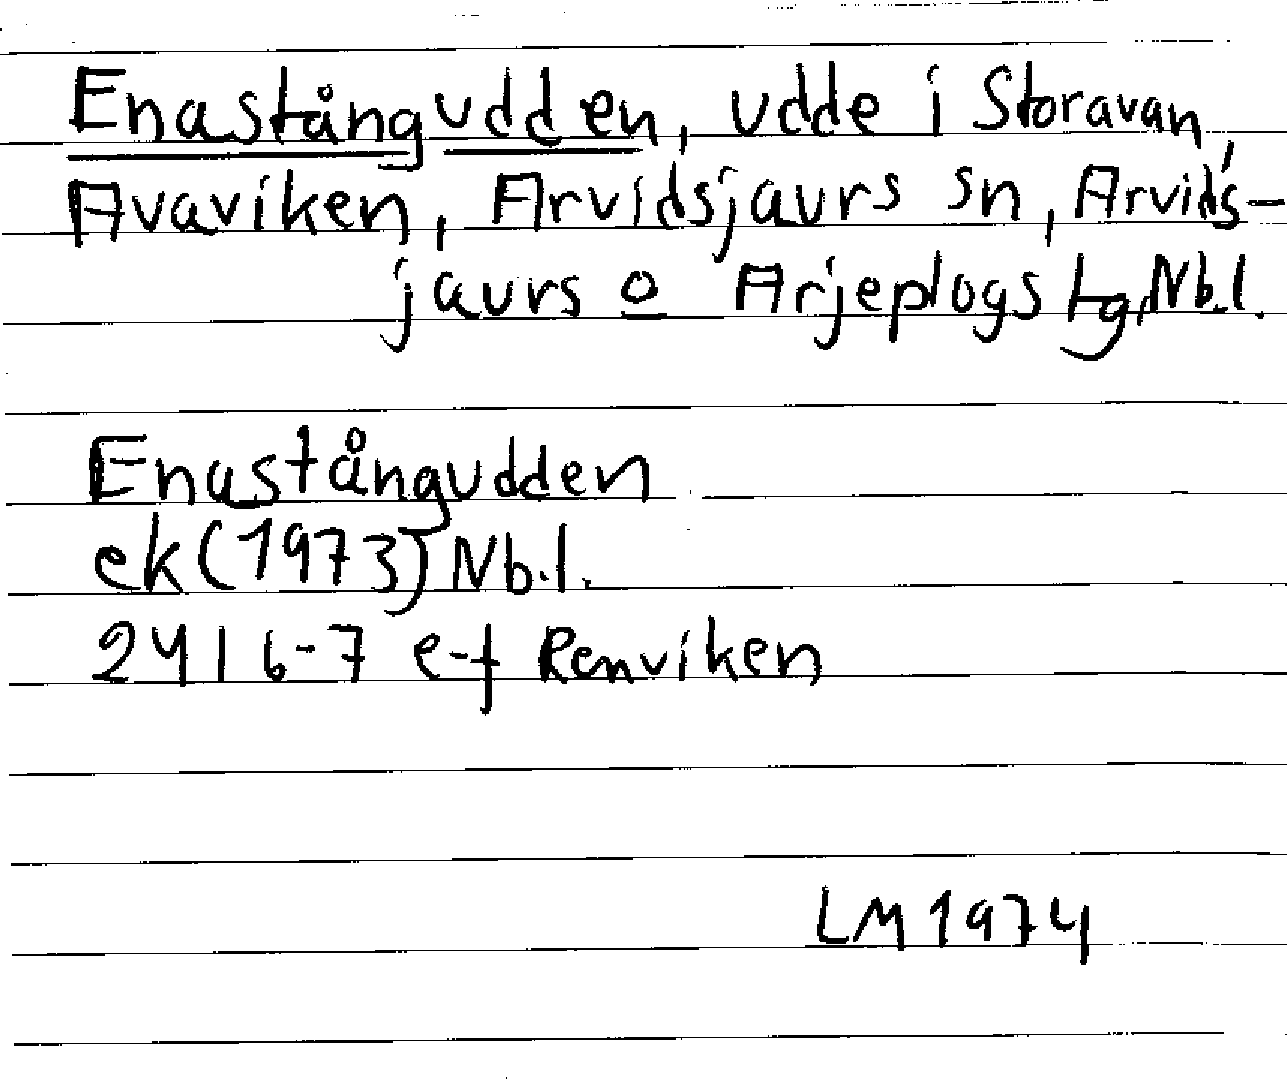 Enastångudden, udde i Storavan,
Avaviken, Arvidsjaurs sn, Arvids-
jaurs o Arjeplogs tg, Nb.l.
Enastångudden
ek (1973) Nb.l.
24 I 6-7 e-f Renviken
LM 1974